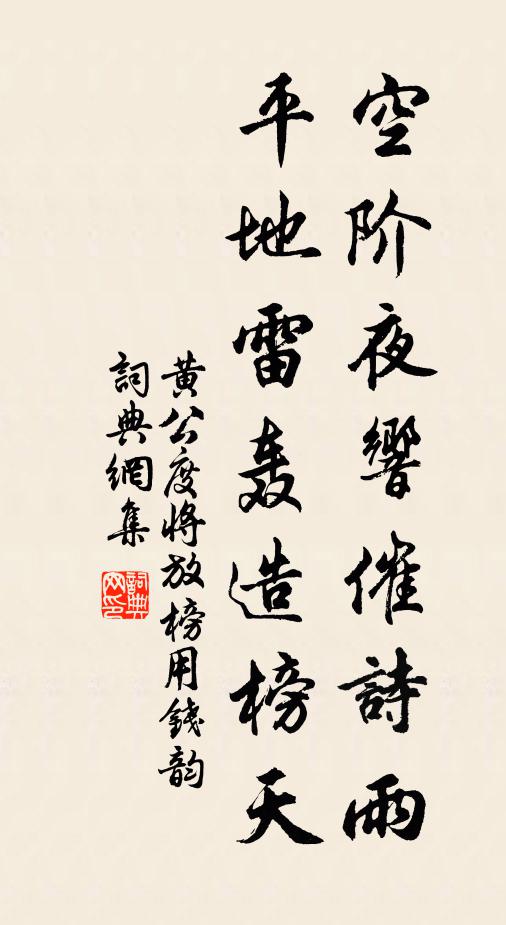 空阶夜響催詩雨
平地雷轰造榜天
黄公度将放榜用錢韵
詞典網集
詞典
网印